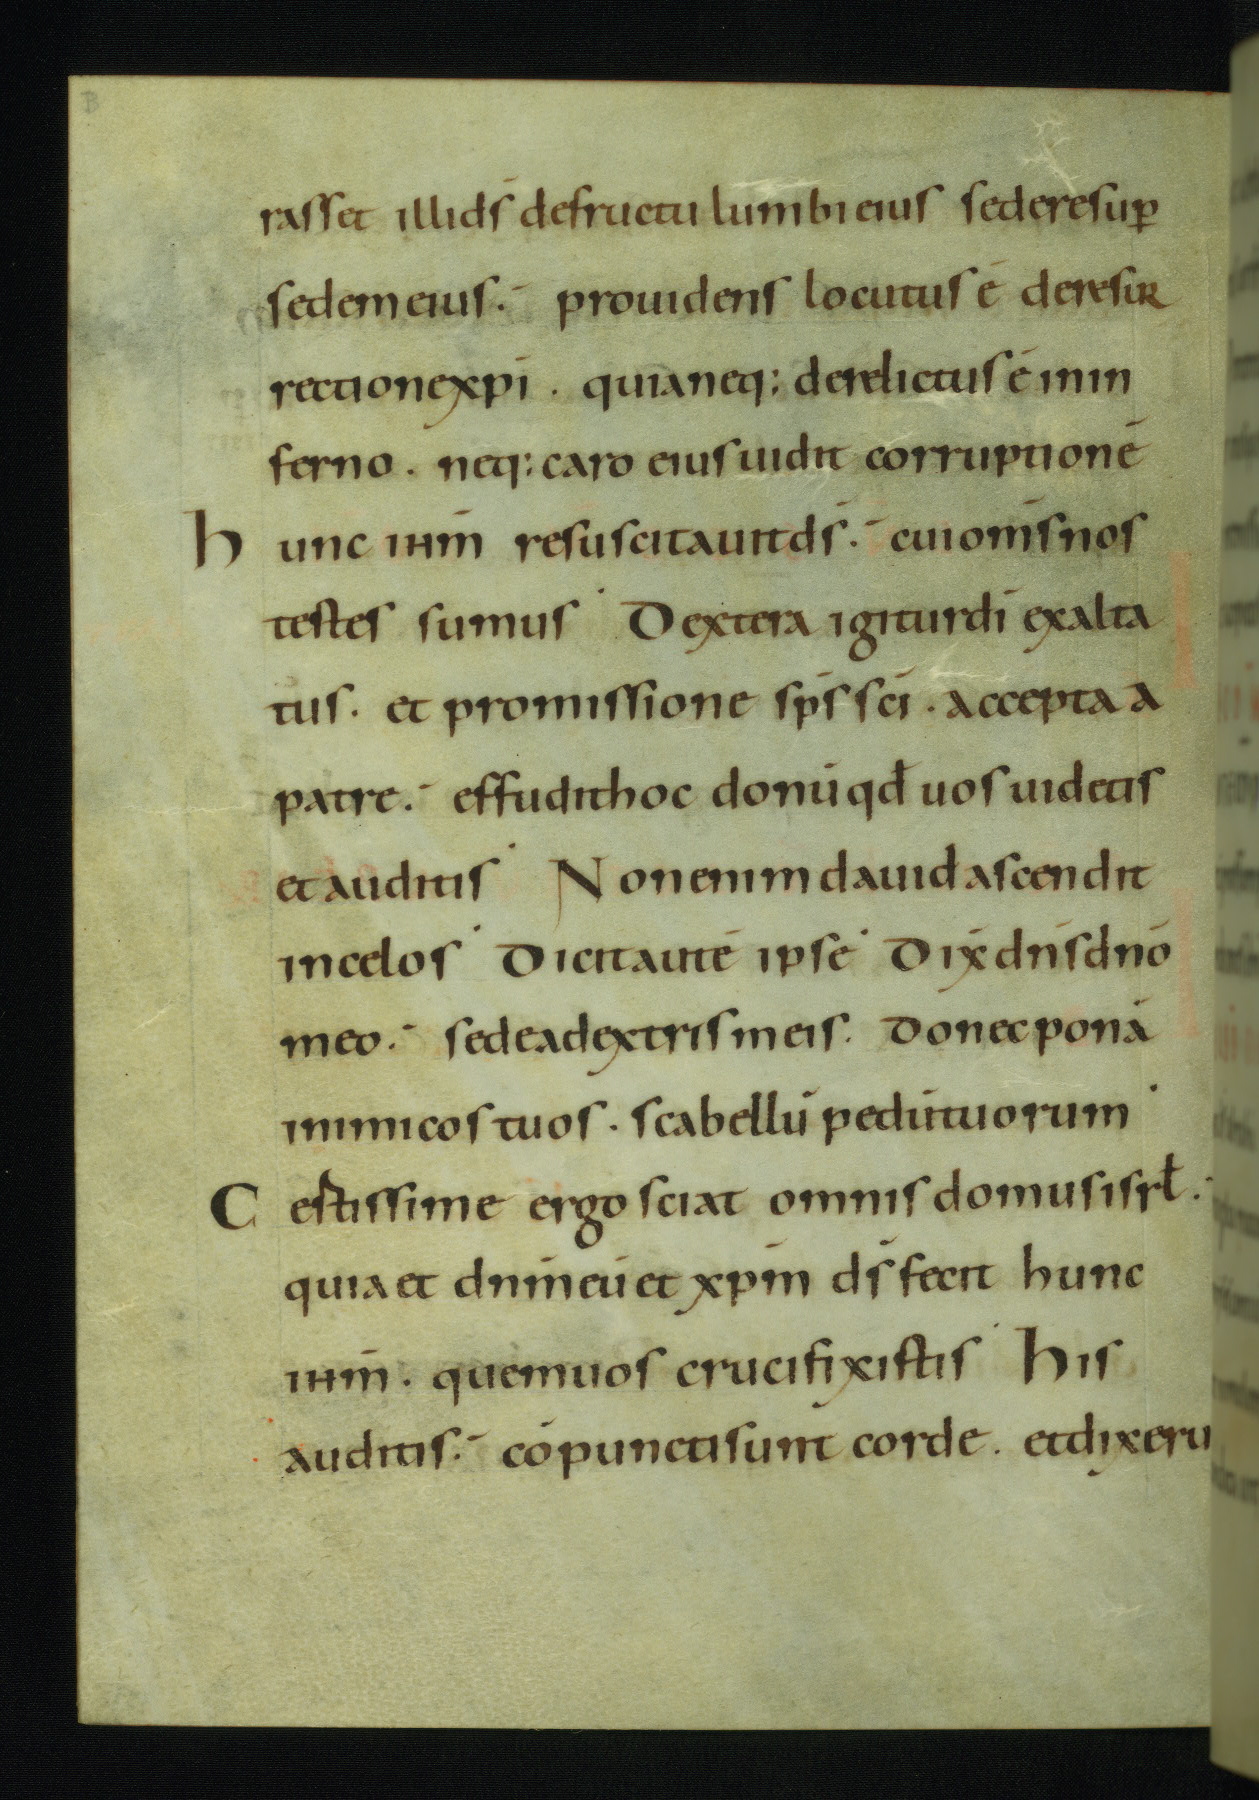 rasset illi ds̄ de fructu lumbi eius sedere sup̄
sedem eius. prouidens locutus ē de resur
rectione xp̄i. quia neq; derelictus ē in in
ferno. neq; caro eius uidit corruptionē
hunc ih̄m resuscitauit ds̄. cui om̄s nos
testes sumus. Dextera igitur dī exalta
tus. et promissione sp̄s sc̄i. accepta a
patre. effudit hoc donū qd̄ uos uidetis
et auditis. Non enim dauid ascendit
in celos. Dicit autē ipse. Dix̄ dn̄s dn̄o
meo. sede a dextris meis. Donec ponā
inimicos tuos. scabellū pedū tuorum.
Cestissime ergo sciat omnis domus isrƚ.
quia et dn̄m eū et xp̄m ds̄ fecit hunc
ih̄m. quem uos crucifixistis. His
auditis. cōpuncti sunt corde. et dixeru